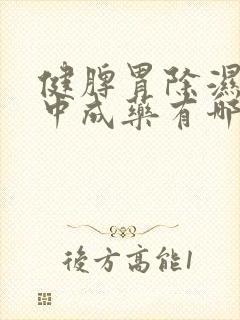 健脾胃除濕
中成藥有哪
後方高能1